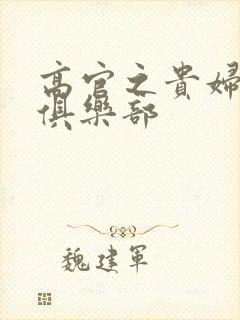 高官之貴婦
俱樂部
魏建軍